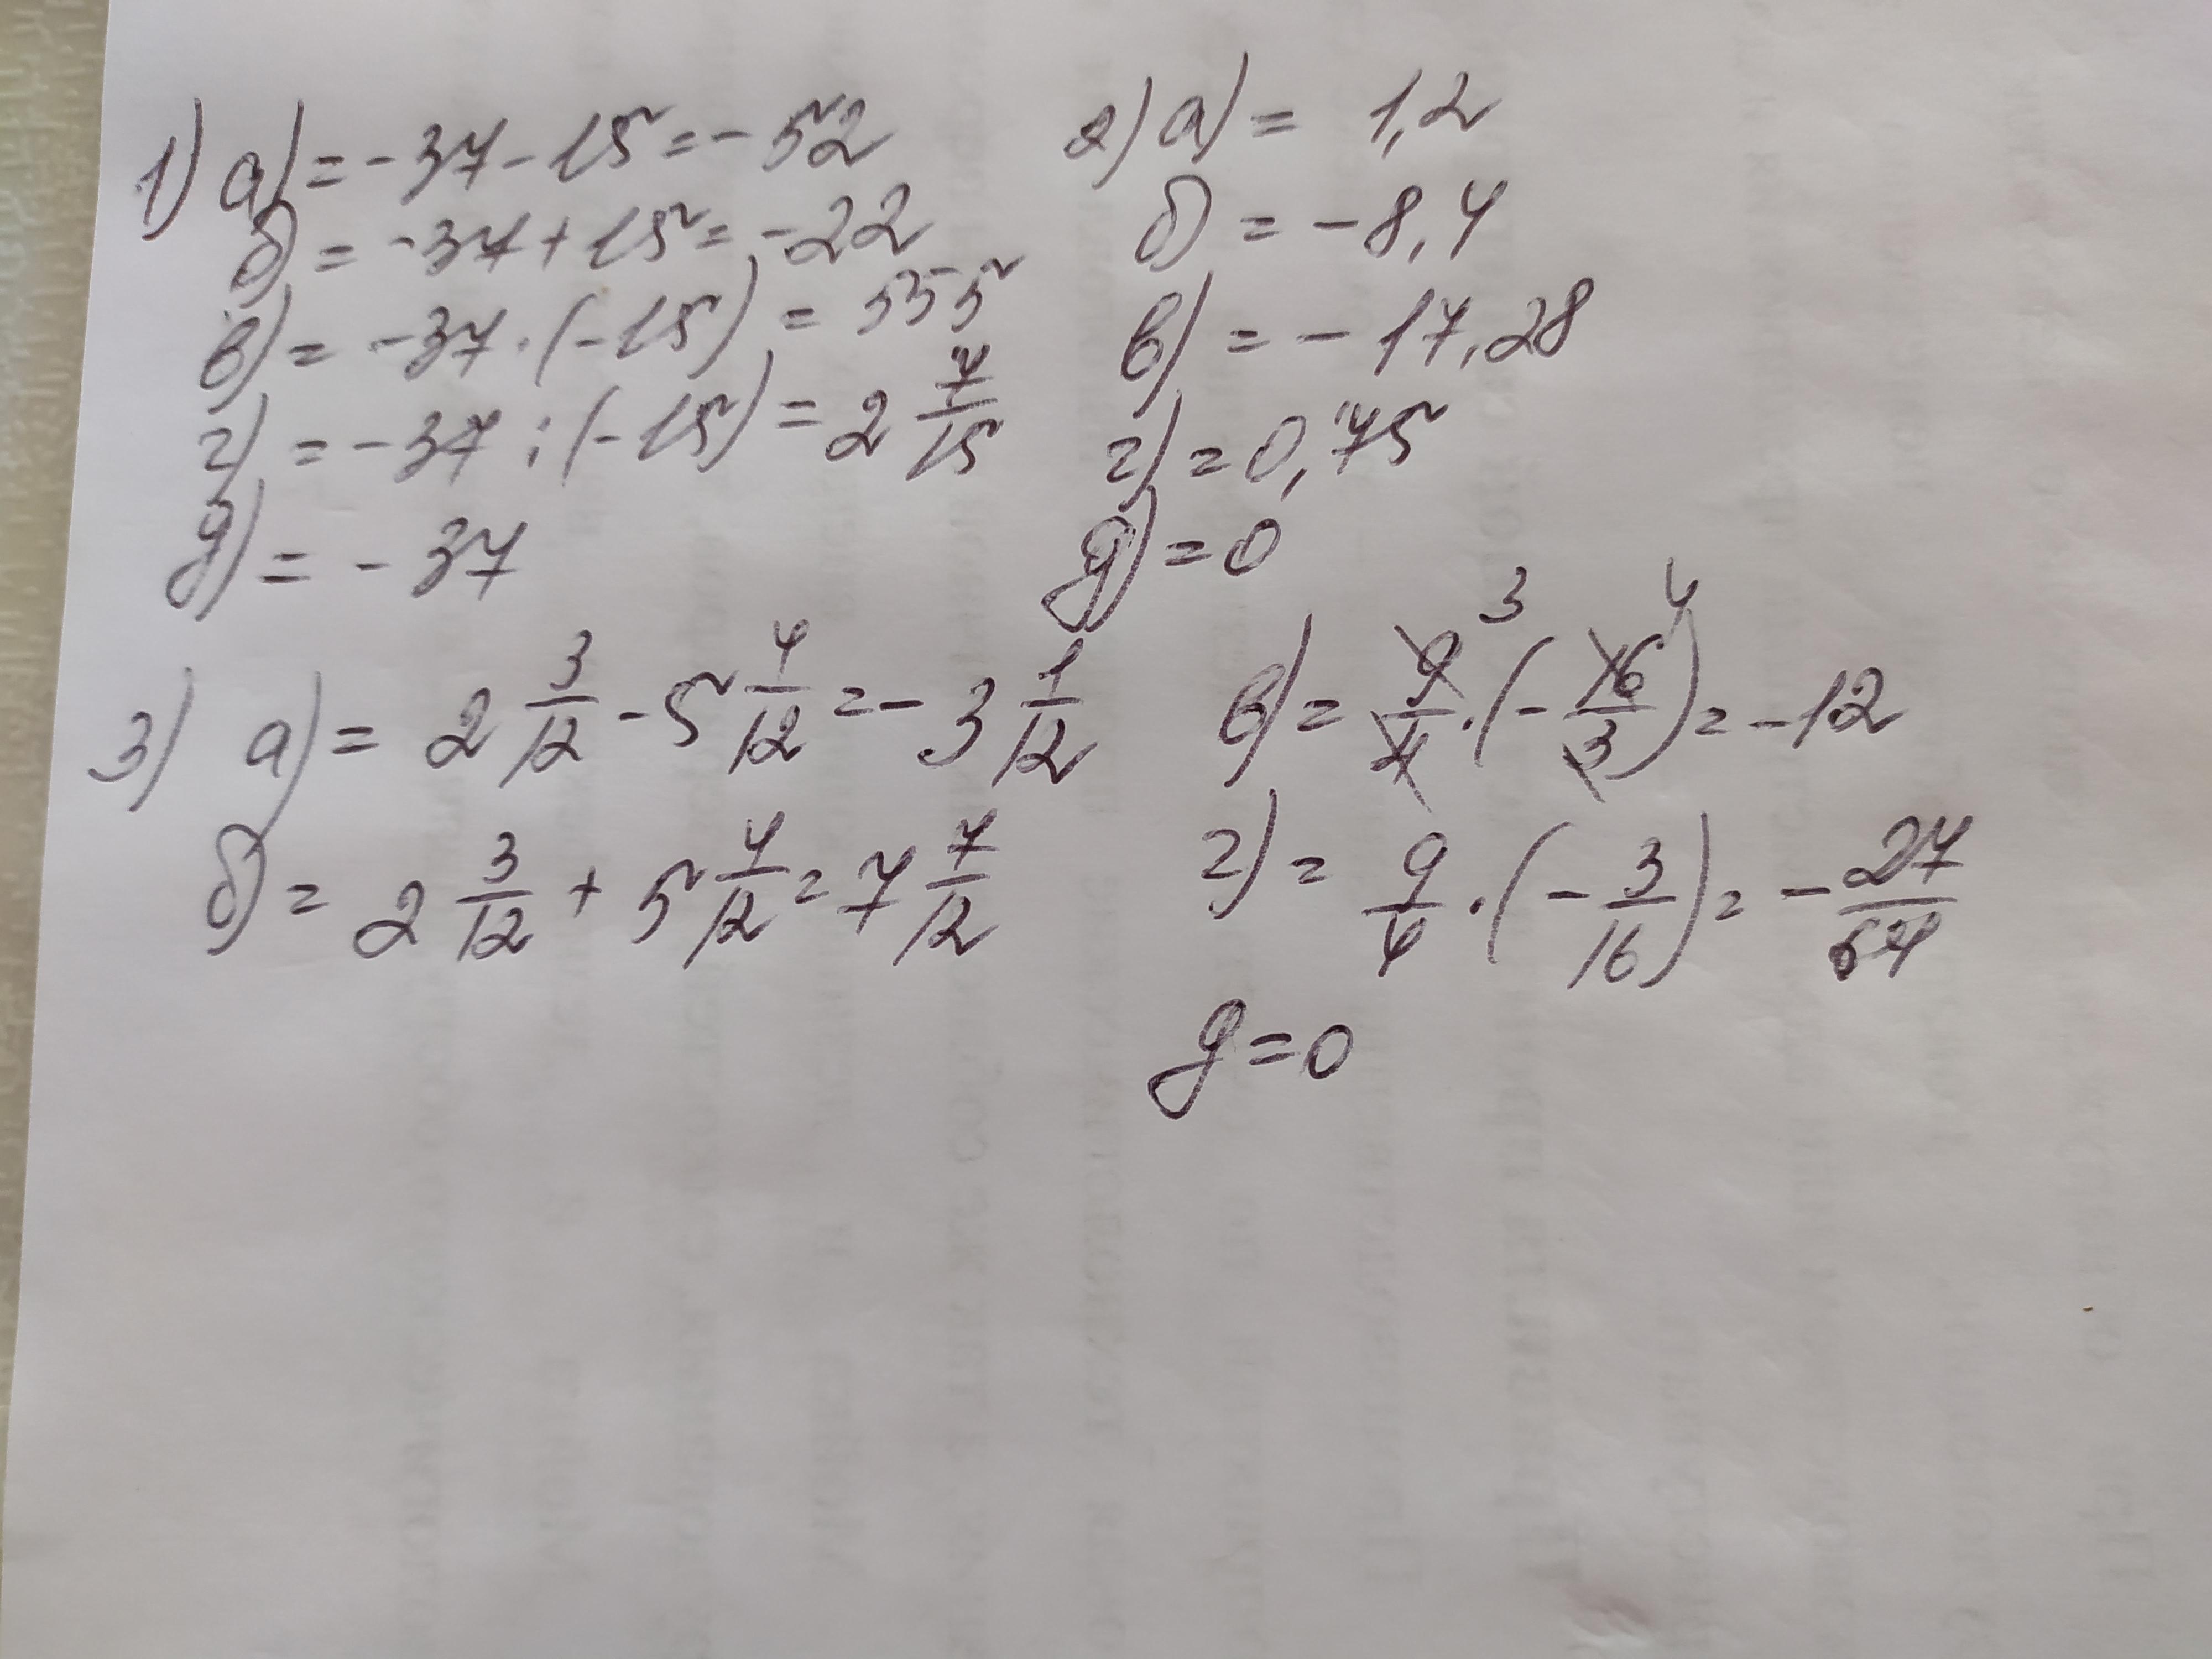 1) а) = -37 - 15 = -52
б) = -37 + 15 = -22
в) = -37 · (-15) = 555
г) = -37 : (-15) = 2 7/15
д) = -37
2) а) = 1,2
б) = -8,4
в) = -17,28
г) = 0,75
д) = 0
3) а) = 2 3/12 - 5 4/12 = -3 1/12
б) = 2 3/12 + 5 4/12 = 7 7/12
3 4
в) = 9/4 · (-16/3) = -12
г) = 9/4 · (-3/16) = -27/64
д = 0